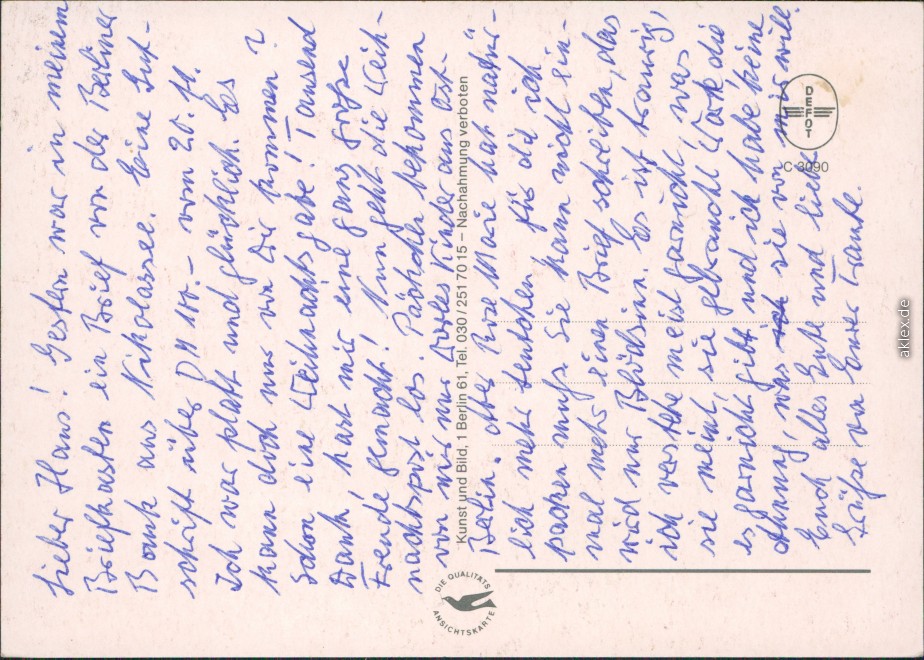 Lieber Hans! Gestern war in meinem
Briefkasten ein Brief von der Berliner
Bank aus Nikolassee. Eine Gut-
schrift über DM 100.- vom 20. 11.
Ich war platt und glücklich. Es
kann doch nur von Dir kommen?
Schon eine Weihnachtsgabe! Tausend
Dank! hast mir eine ganz große
Freude gemacht! Nun geht die Weih-
nachtspost los. Päckchen bekommen
von mir nur Kinder aus Ost-
Berlin. Aber Rose Marie hat natür-
lich mehr Leutchen für die ich
packen muß. Sie kann nicht ein-
mal mehr einen Brief schreiben, das
wird nur Blödsinn. Es ist traurig,
ich verstehe meist garnicht, was
sie meint, sie gebraucht Worte die
es garnicht gibt und ich habe keine
Ahnung, was sie von mir will.
Euch alles Gute und liebe
Grüße von Eurer Tante.
Kunst und Bild, 1 Berlin 61, Tel. 030 / 251 70 15 – Nachahmung verboten
DIE QUALITÄTS
ANSICHTSKARTE
DEFOT
C 3090
aklex.de